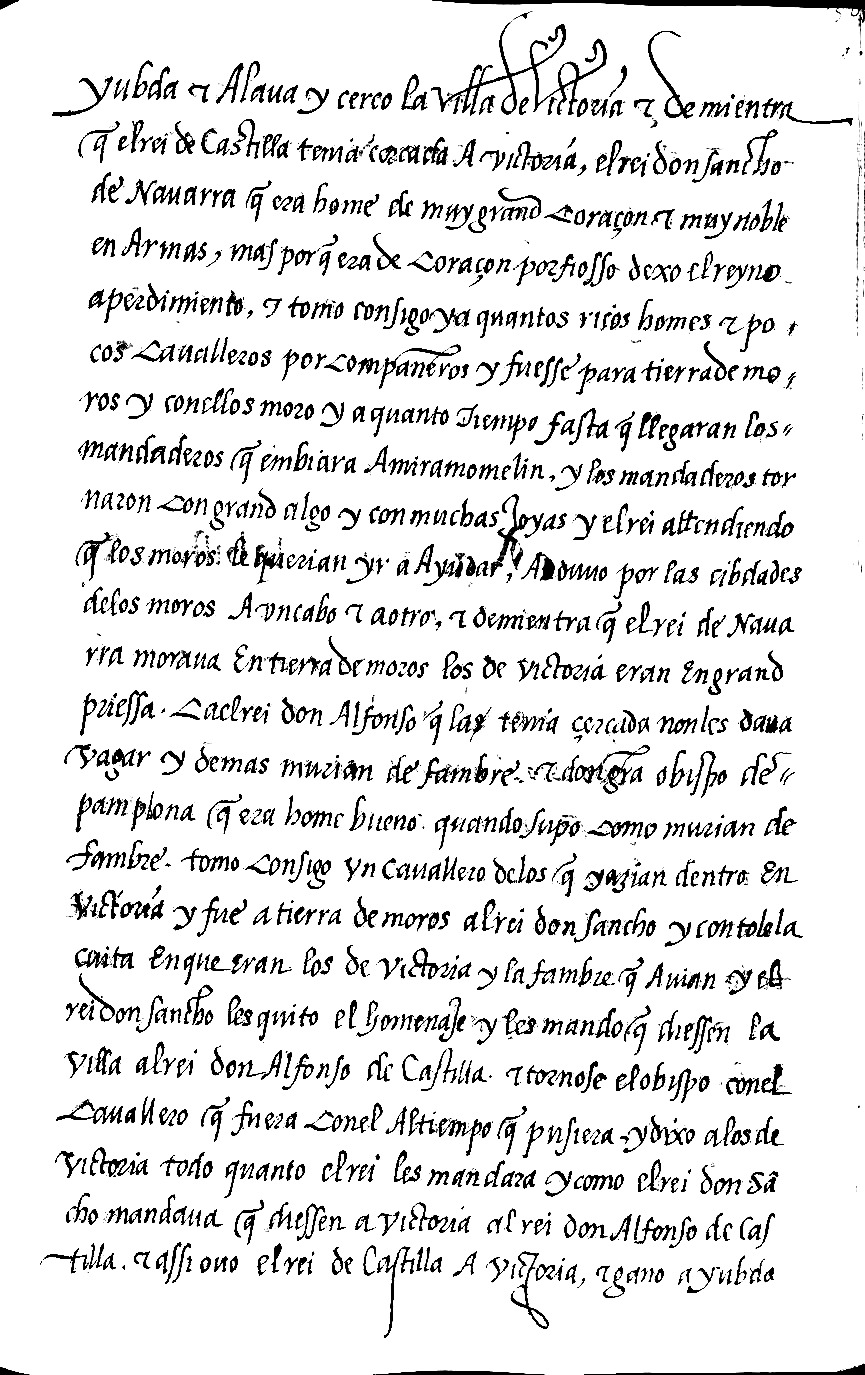 yubda & Alaua y cerco la villa de victoria & de mientra
q̃ el rei de Castilla tenia cercada A victoria, el rei don sancho
de Nauarra q̃ era home de muy grand Coraçon & muy noble
en Armas, mas porq̃ era de Coraçon porfiosso dexo el reyno
a perdimiento, & tomo consigo ya quantos ricos homes & po
cos Caualleros por Compañeros y fuesse para tierra de mo
ros y con ellos moro y a quanto Tiempo fasta q̃ llegaran los
mandaderos q̃ embiara Amiramomelin, y los mandaderos tor
naron Con grand algo y con muchas Joyas y el rei attendiendo
q̃ los moros le querian yr a Ayudar, Anduuo por las cibdades
de los moros A vn cabo & a otro, & demientra q̃ el rei de Naua
rra moraua En tierra de moros los de victoria eran En grand
priessa. Ca el rei don Alfonso q̃ las tenia çercada non les daua
vagar y demas murian de fambre. & don gra obispo de
pamplona q̃ era home bueno quando supo Como murian de
fambre. tomo Consigo vn Cauallero de los q̃ yazian dentro En
Victoria y fue a tierra de moros al rei don sancho y contole la
cuita En que Eran los de victoria y la fambre q̃ Auian y el
rei don sancho les quito el homenaje y les mando q̃ diessen la
villa al rei don Alfonso de Castilla. & tornose el obispo con el
Cauallero q̃ fuera Con el Al tiempo q̃ pusiera y dixo a los de
Victoria todo quanto el rei les mandara y como el rei don Sã
cho mandaua q̃ diessen a victoria al rei don Alfonso de Cas
tilla. & assi ouo el rei de Castilla A victoria, & gano a yubda